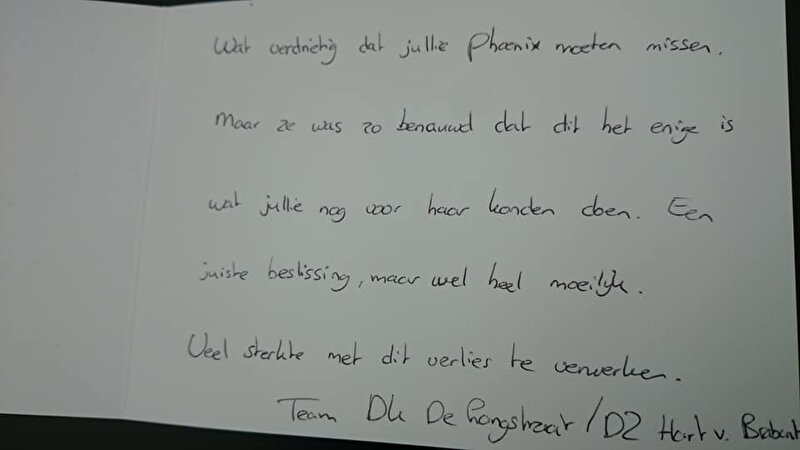 Wat verdrietig dat jullie Phoenix moeten missen.
Maar ze was zo benauwd dat dit het enige is
wat jullie nog voor haar konden doen. Een
juiste beslissing, maar wel heel moeilijk.
Veel sterkte met dit verlies te verwerken.
Team DK De Langstraat / DZ Hart v. Brabant